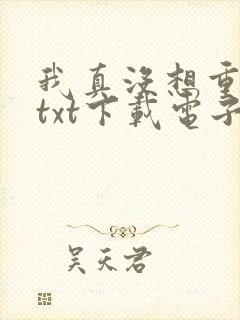 我真没想重
txt下载电子
吴天君